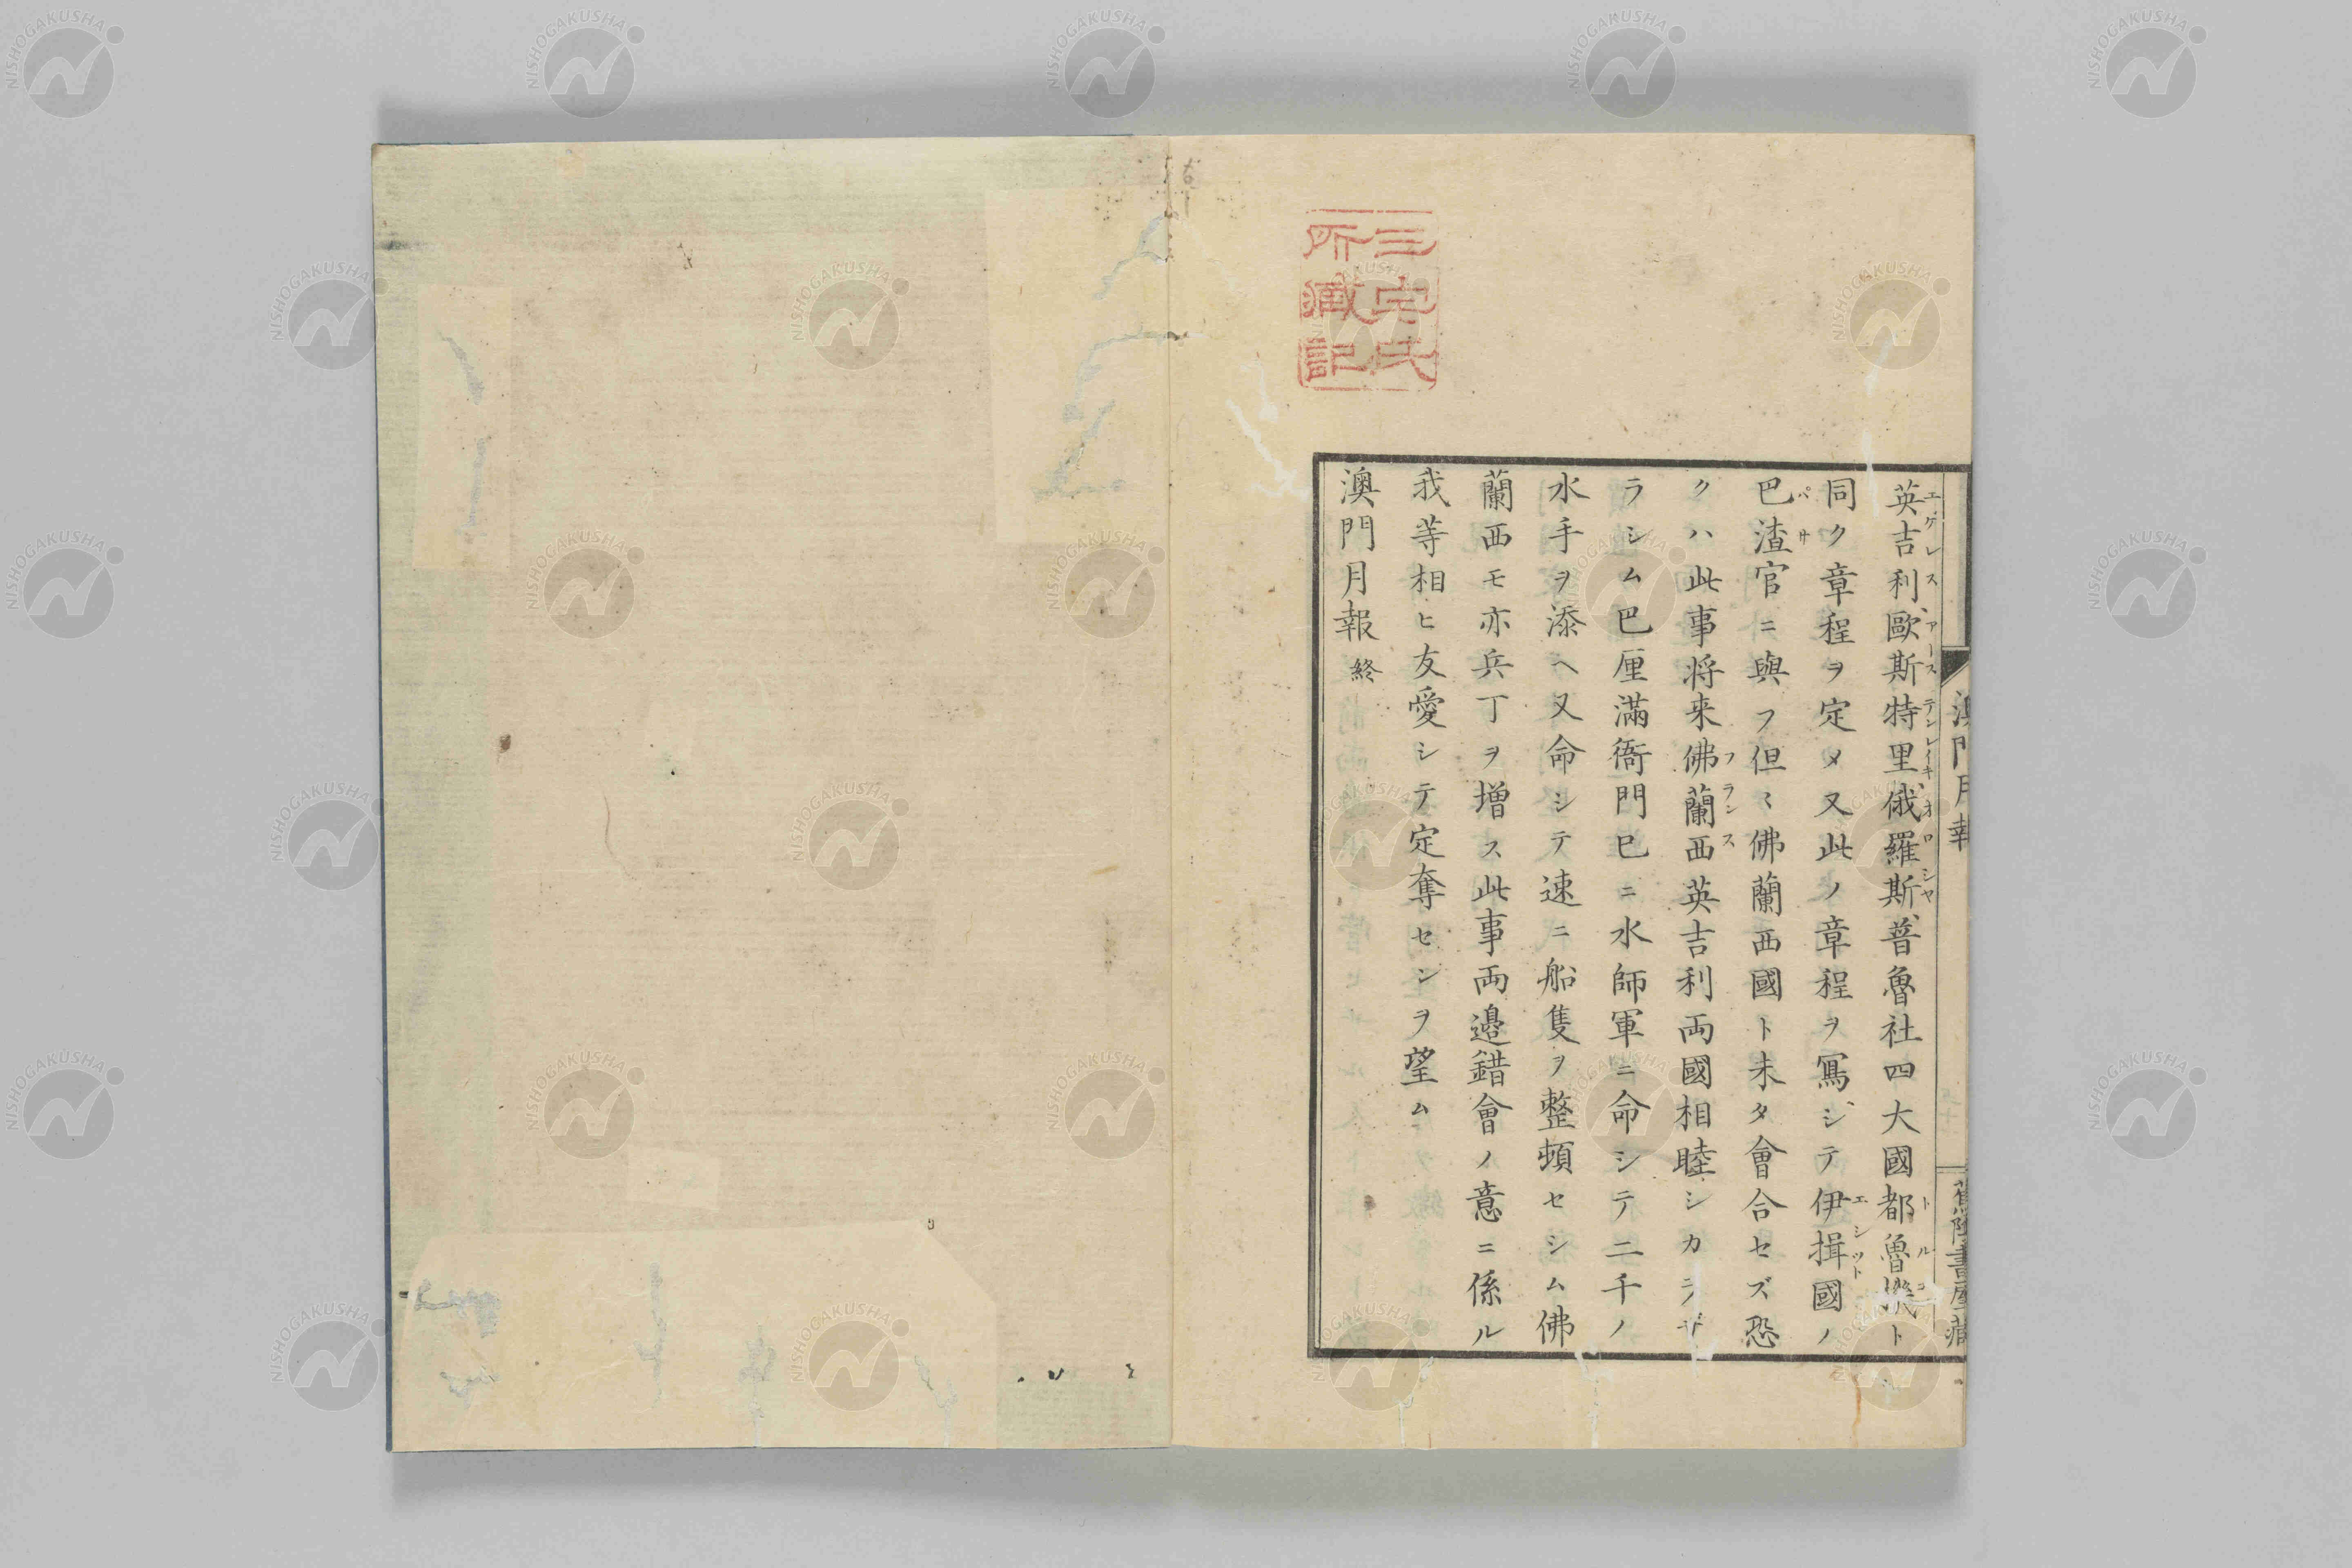 英吉利歐斯特里俄羅斯普魯社四大國都魯機ト
エゲレス、アーステンレーキ、オロシヤ トルコ
同ク章程ヲ定メ又此ノ章程ヲ寫シテ伊揖國ノ
エシット
巴渣官ニ與フ但〻佛蘭西國ト未タ會合セズ恐
パサ
クハ此事将来佛蘭西英吉利両國相睦シカラザ
フランス
ラシム巴厘滿衙門已ニ水師軍ニ命シテ二千ノ
水手ヲ添ヘ又命シテ速ニ船隻ヲ整頓セシム佛
蘭西モ亦兵丁ヲ増ス此事両邉錯會ノ意ニ係ル
我等相ヒ友愛シテ定奪センヲ望ム
澳門月報 終
澳門月報
書屋藏
三宅氏
所藏記
NISHOGAKUSHA